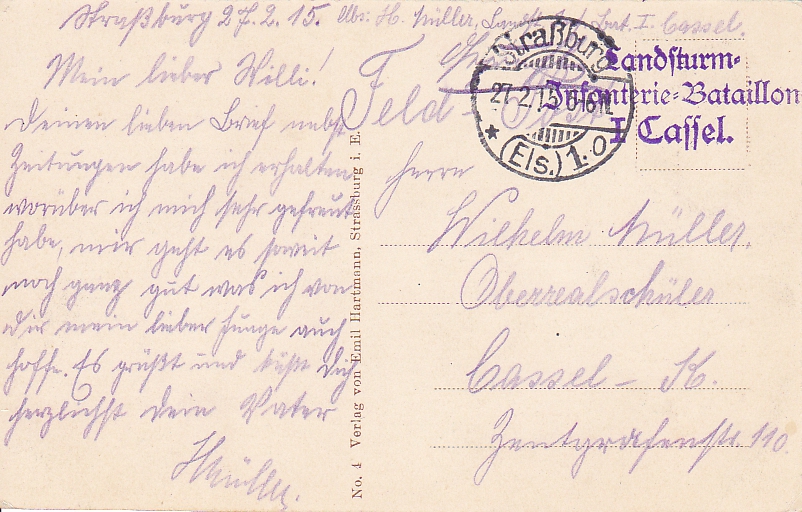 Straßburg 27.2.15.
H. Müller, Landst. Inf. Bat. I. Cassel.
Mein lieber Willi!
Deinen lieben Brief nebst
Zeitungen habe ich erhalten
worüber ich mich sehr gefreut
habe, mir geht es soweit
noch ganz gut was ich von
dir mein lieber Junge auch
hoffe. Es grüßt und küßt dich
herzlichst dein Vater
HMüller.
No. 4 Verlag von Emil Hartmann, Strassburg i. E.
Feld-Post
Straßburg
27.2.15
* (Els.) 1.0
Landsturm-
Infanterie-Bataillon
I Cassel.
Herrn
Wilhelm Müller.
Oberrealschüler
Cassel - K.
Zentgrafenstr 110.